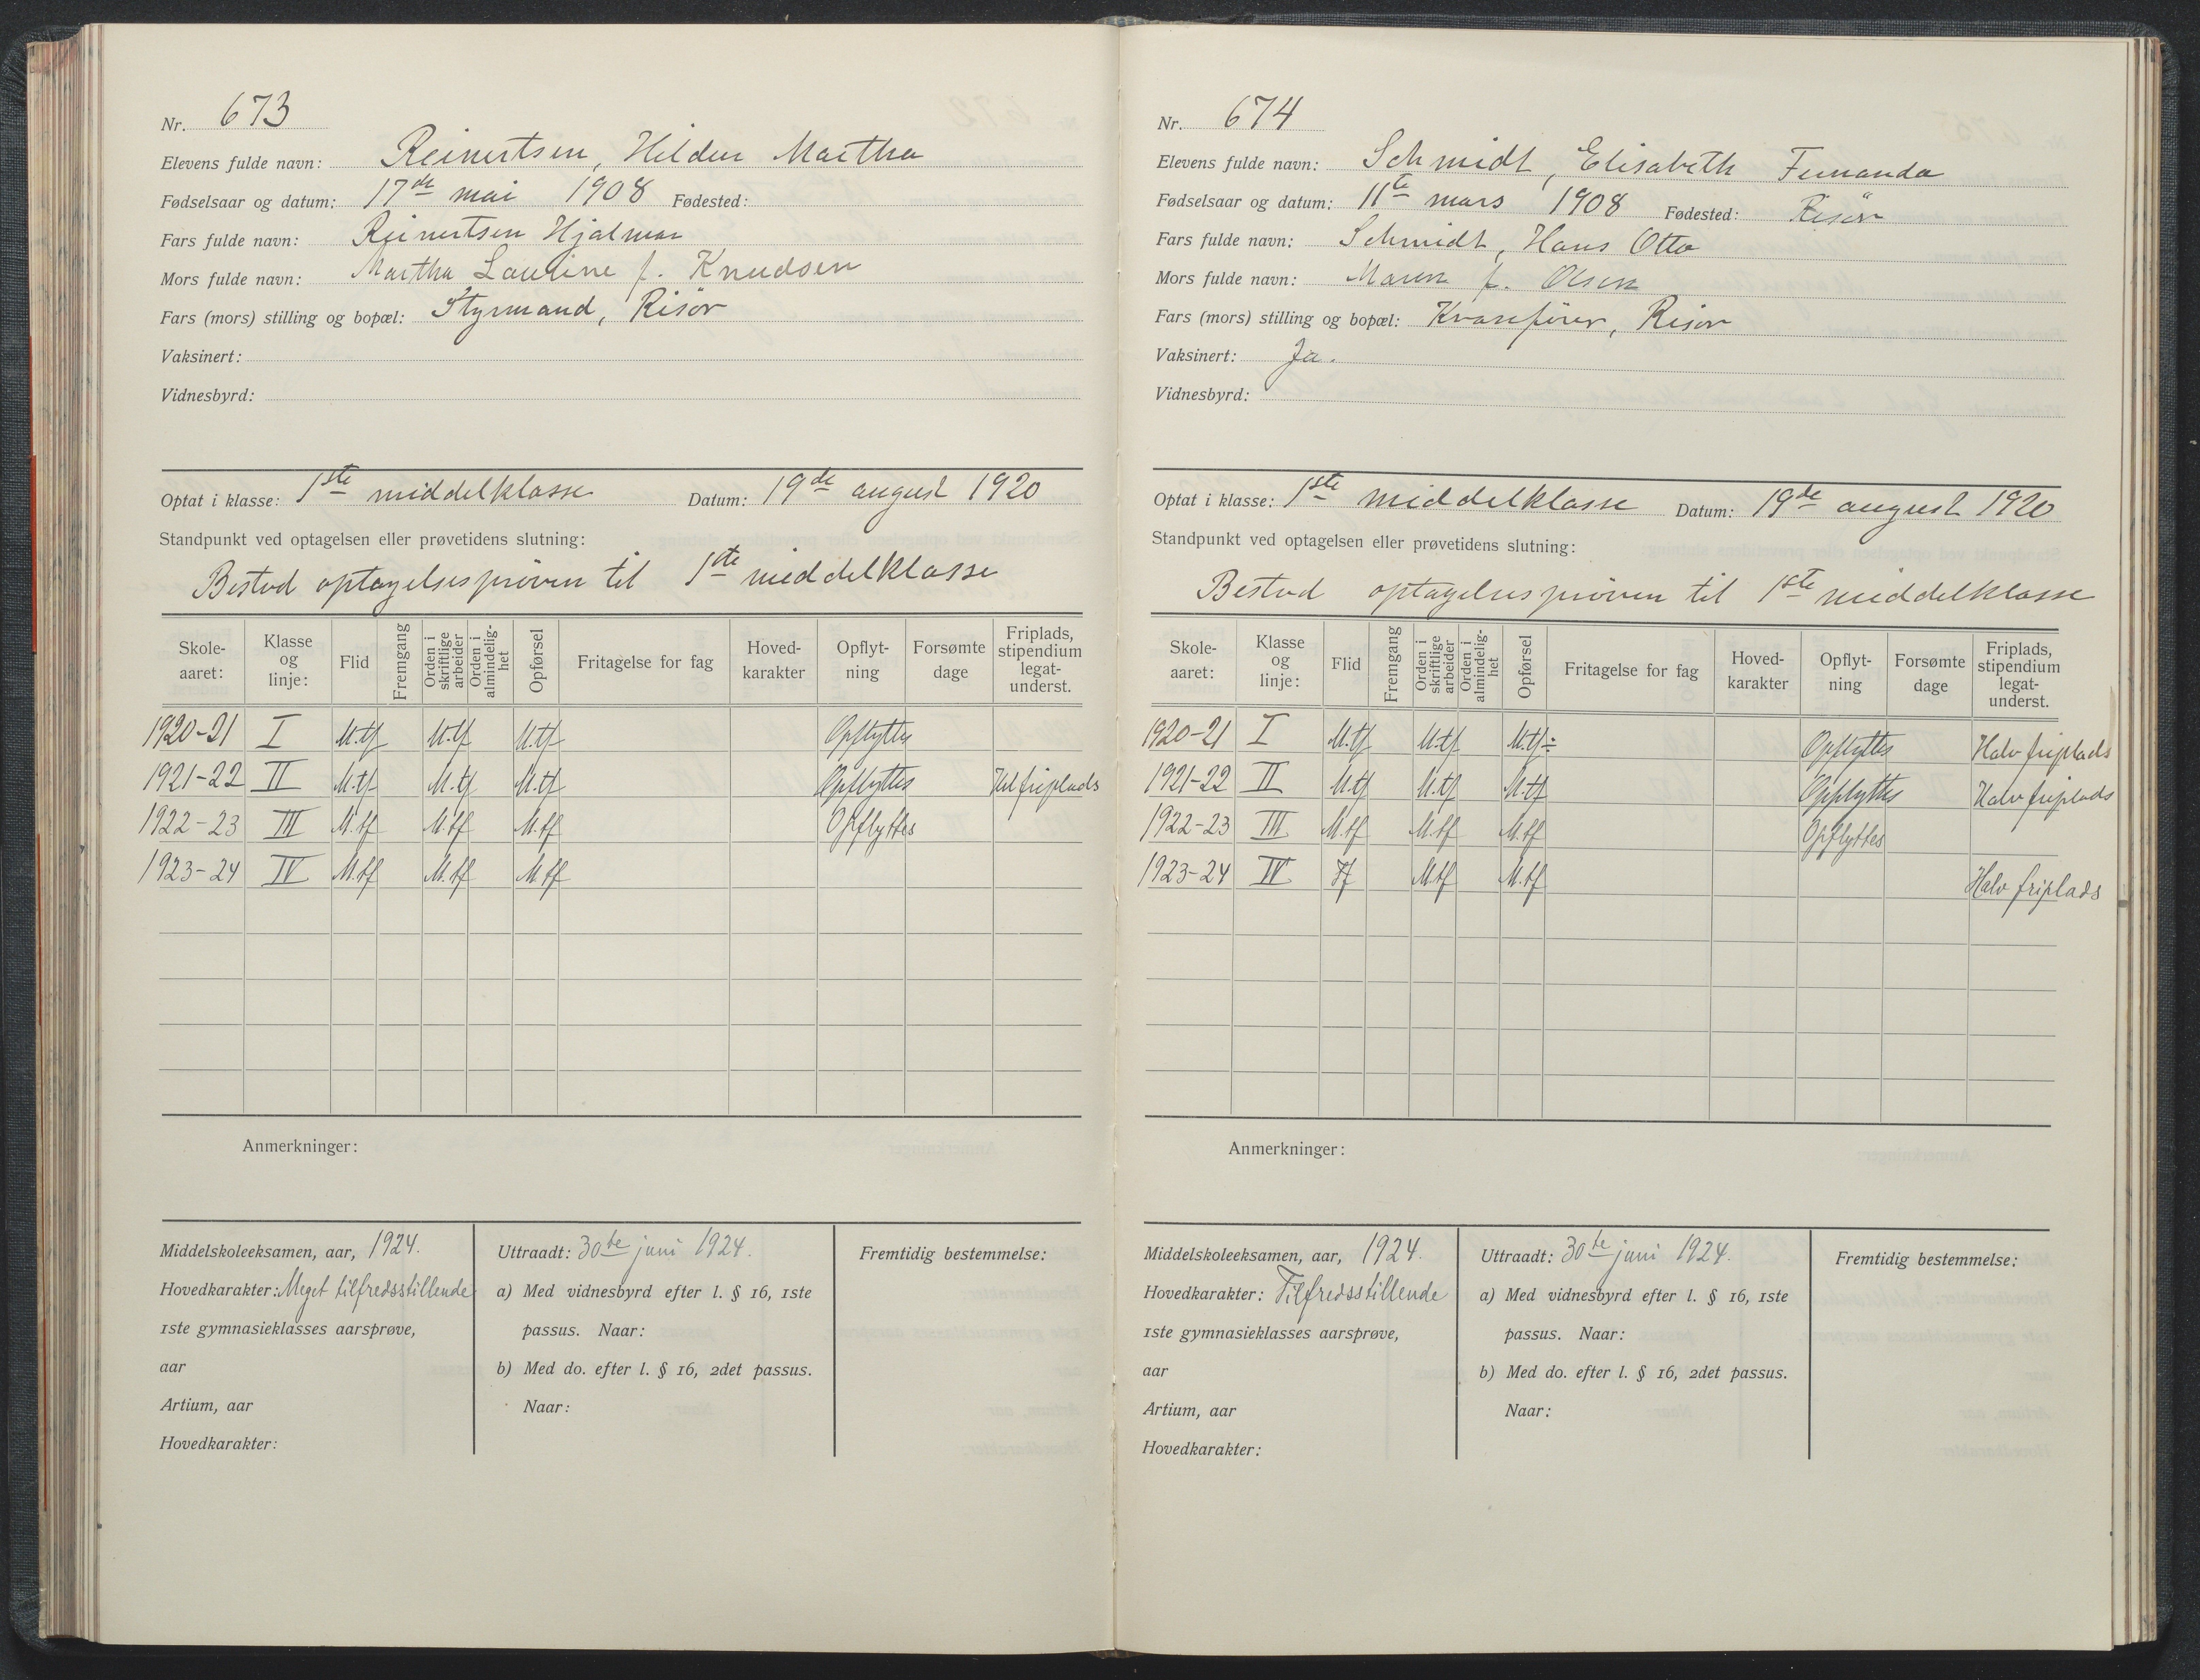 Nr. 673
Elevens fulde navn: Reinertsen, Hildur Martha
Fødselsaar og datum: 17de mai 1908 Fødested:
Fars fulde navn: Reinertsen Hjalmar
Mors fulde navn: Martha Laurine f. Knudsen
Fars (mors) stilling og bopæl: Styrmand, Risör
Vaksinert:
Vidnesbyrd:
Optat i klasse: 1ste middelklasse Datum: 19de august 1920
Standpunkt ved optagelsen eller prøvetidens slutning:
Bestod optagelsespröven til 1ste middelklasse
Skole-aaret: Klasse og linje: Flid Fremgang Orden i skriftlige arbeider Orden i almindelig-het Opførsel Fritagelse for fag Hoved-karakter Opflyt-ning Forsømte dage Friplads, stipendium legat-underst.
1920-21 I M.tf M.tf M.tf Opflyttes
1921-22 II M.tf M.tf M.tf Opflyttes Hel friplads
1922-23 III M.tf M.tf M.tf Opflyttes
1923-24 IV M.tf M.tf M.tf
Anmerkninger:
Middelskoleeksamen, aar, 1924.
Hovedkarakter: Meget tilfredsstillende
1ste gymnasieklasses aarsprøve,
aar
Artium, aar
Hovedkarakter:
Uttraadt: 30te juni 1924.
a) Med vidnesbyrd efter l. § 16, 1ste
passus. Naar:
b) Med do. efter l. § 16, 2det passus.
Naar:
Fremtidig bestemmelse:
Nr. 674
Elevens fulde navn: Schmidt, Elisabeth Fernanda
Fødselsaar og datum: 11te mars 1908 Fødested: Risör
Fars fulde navn: Schmidt, Hans Otto
Mors fulde navn: Maren f. Olsen
Fars (mors) stilling og bopæl: Kranfører, Risör
Vaksinert: Ja.
Vidnesbyrd:
Optat i klasse: 1ste middelklasse Datum: 19de august 1920
Standpunkt ved optagelsen eller prøvetidens slutning:
Bestod optagelsespröven til 1ste middelklasse
Skole-aaret: Klasse og linje: Flid Fremgang Orden i skriftlige arbeider Orden i almindelig-het Opførsel Fritagelse for fag Hoved-karakter Opflyt-ning Forsømte dage Friplads, stipendium legat-underst.
1920-21 I M.tf M.tf M.tf÷ Opflyttes Halv friplads
1921-22 II M.tf M.tf M.tf Opflyttes Halv friplads
1922-23 III M.tf M.tf M.tf Opflyttes
1923-24 IV Tf M.tf M.tf Halv friplads
Anmerkninger:
Middelskoleeksamen, aar, 1924.
Hovedkarakter: Tilfredsstillende
1ste gymnasieklasses aarsprøve,
aar
Artium, aar
Hovedkarakter:
Uttraadt: 30te juni 1924.
a) Med vidnesbyrd efter l. § 16, 1ste
passus. Naar:
b) Med do. efter l. § 16, 2det passus.
Naar:
Fremtidig bestemmelse: